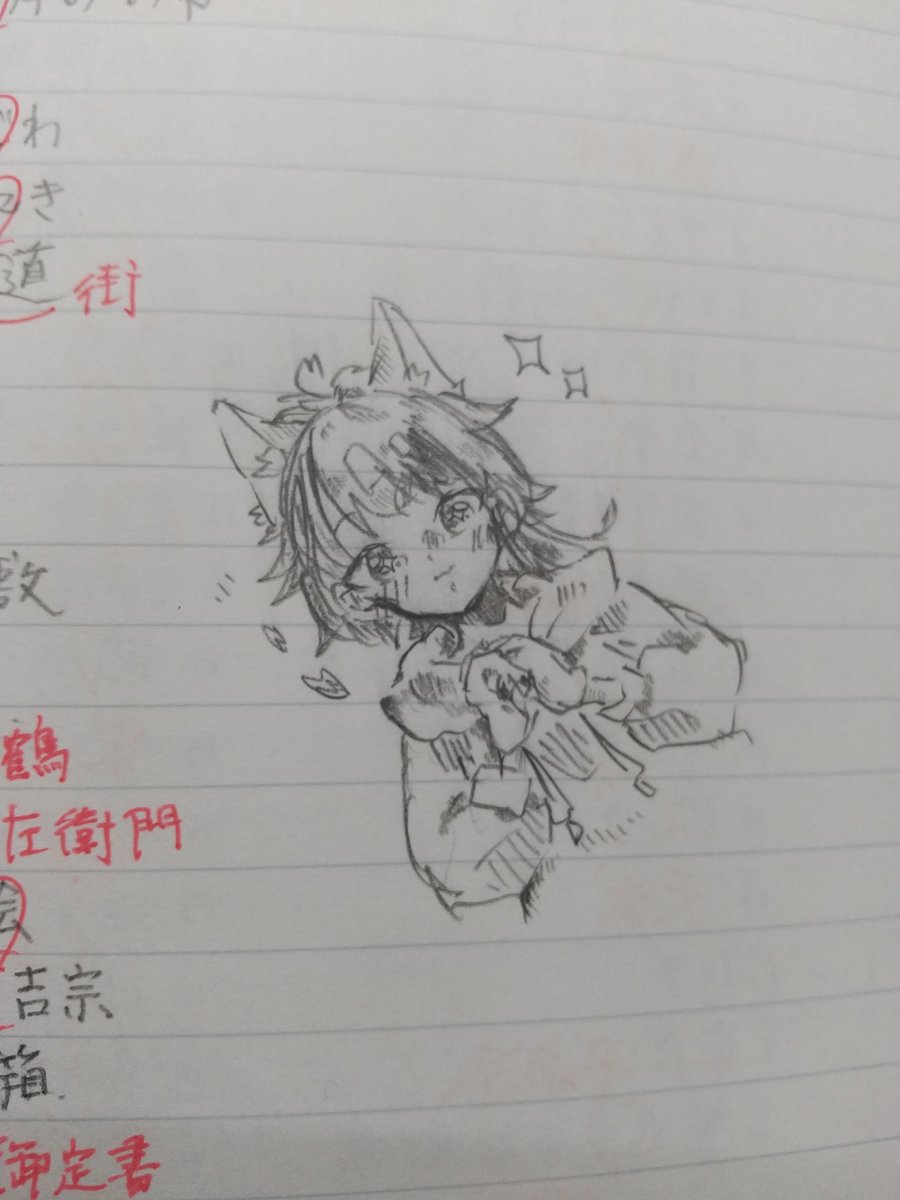 わ
き
道 街
敷
鶴
左衛門
絵
吉宗
箱
御定書